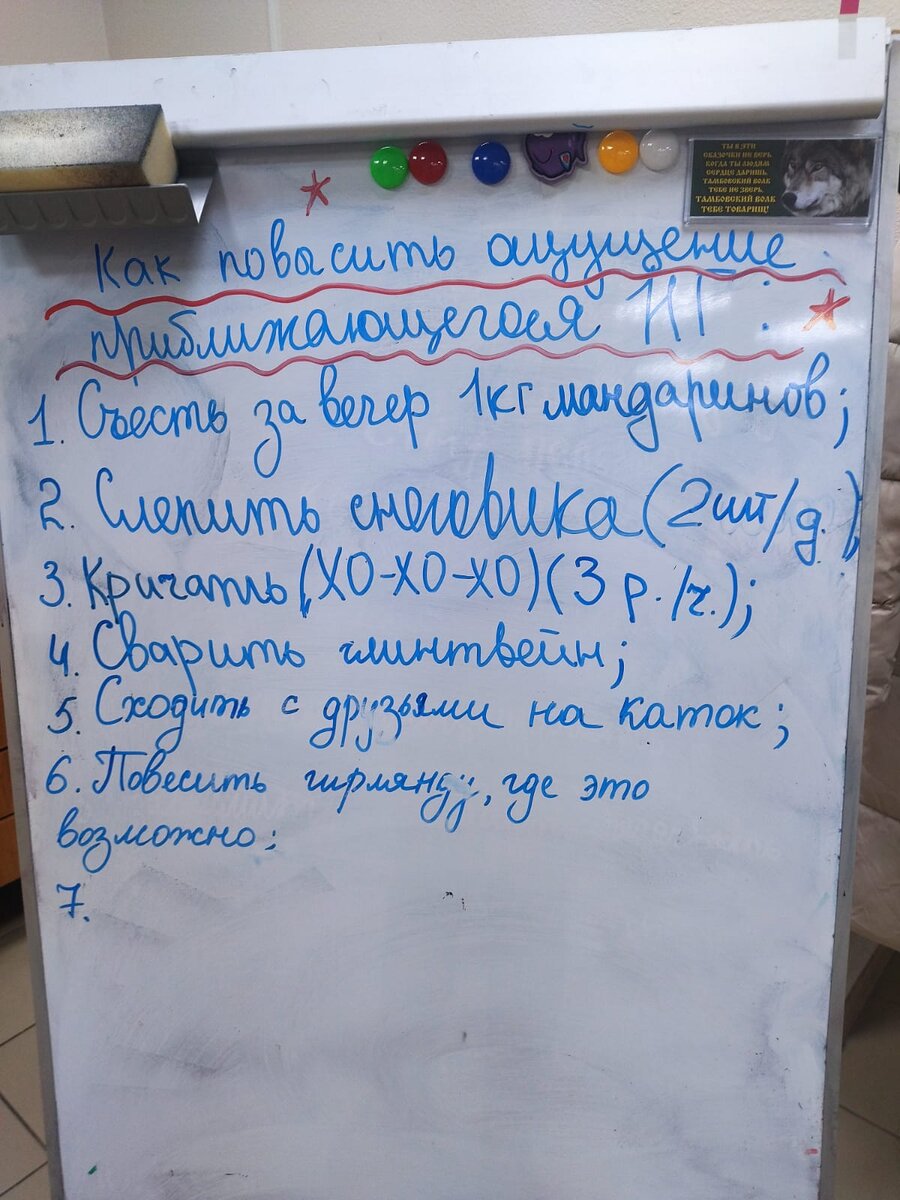 ТЫ В ЭТИ
СКАЗОЧКИ НЕ ВЕРЬ,
КОГДА ТЫ ЛЮДЯМ
СЕРДЦЕ ДАРИШЬ,
ТАМБОВСКИЙ ВОЛК
ТЕБЕ НЕ ЗВЕРЬ,
ТАМБОВСКИЙ ВОЛК
ТЕБЕ ТОВАРИЩ!
Как повысить ощущение
приближающегося НГ:
1. Съесть за вечер 1кг мандаринов;
2. Слепить снеговика (2шт/д.);
3. Кричать (ХО-ХО-ХО) (3 р./ч.);
4. Сварить глинтвейн;
5. Сходить с друзьями на каток;
6. Повесить гирлянду, где это
возможно;
7.